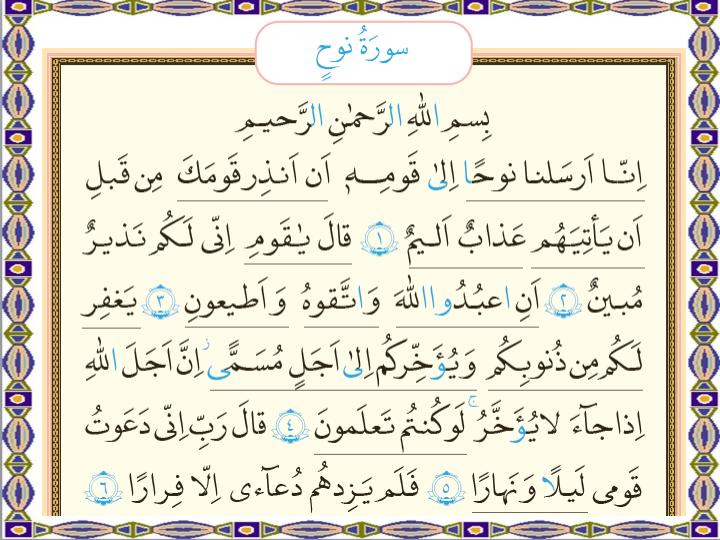 سورَةُ نوحٍ
بِسمِ اللّٰهِ الرَّحمٰنِ الرَّحيمِ
اِنّا اَرسَلنا نوحًا اِلىٰ قَومِهٖ اَن اَنذِر قَومَكَ مِن قَبلِ
اَن يَأتِيَهُم عَذابٌ اَليمٌ ١ قالَ يٰقَومِ اِنّى لَكُم نَذيرٌ
مُبينٌ ٢ اَنِ اعبُدُوا اللّٰهَ وَاتَّقوهُ وَ اَطيعونِ ٣ يَغفِر
لَكُم مِن ذُنوبِكُم وَ يُؤَخِّركُم اِلىٰ اَجَلٍ مُسَمًّىۚ اِنَّ اَجَلَ اللّٰهِ
اِذا جآءَ لا يُؤَخَّرُۚ لَو كُنتُم تَعلَمونَ ٤ قالَ رَبِّ اِنّى دَعَوتُ
قَومى لَيلًا وَ نَهارًا ٥ فَلَم يَزِدهُم دُعآءى اِلّا فِرارًا ٦